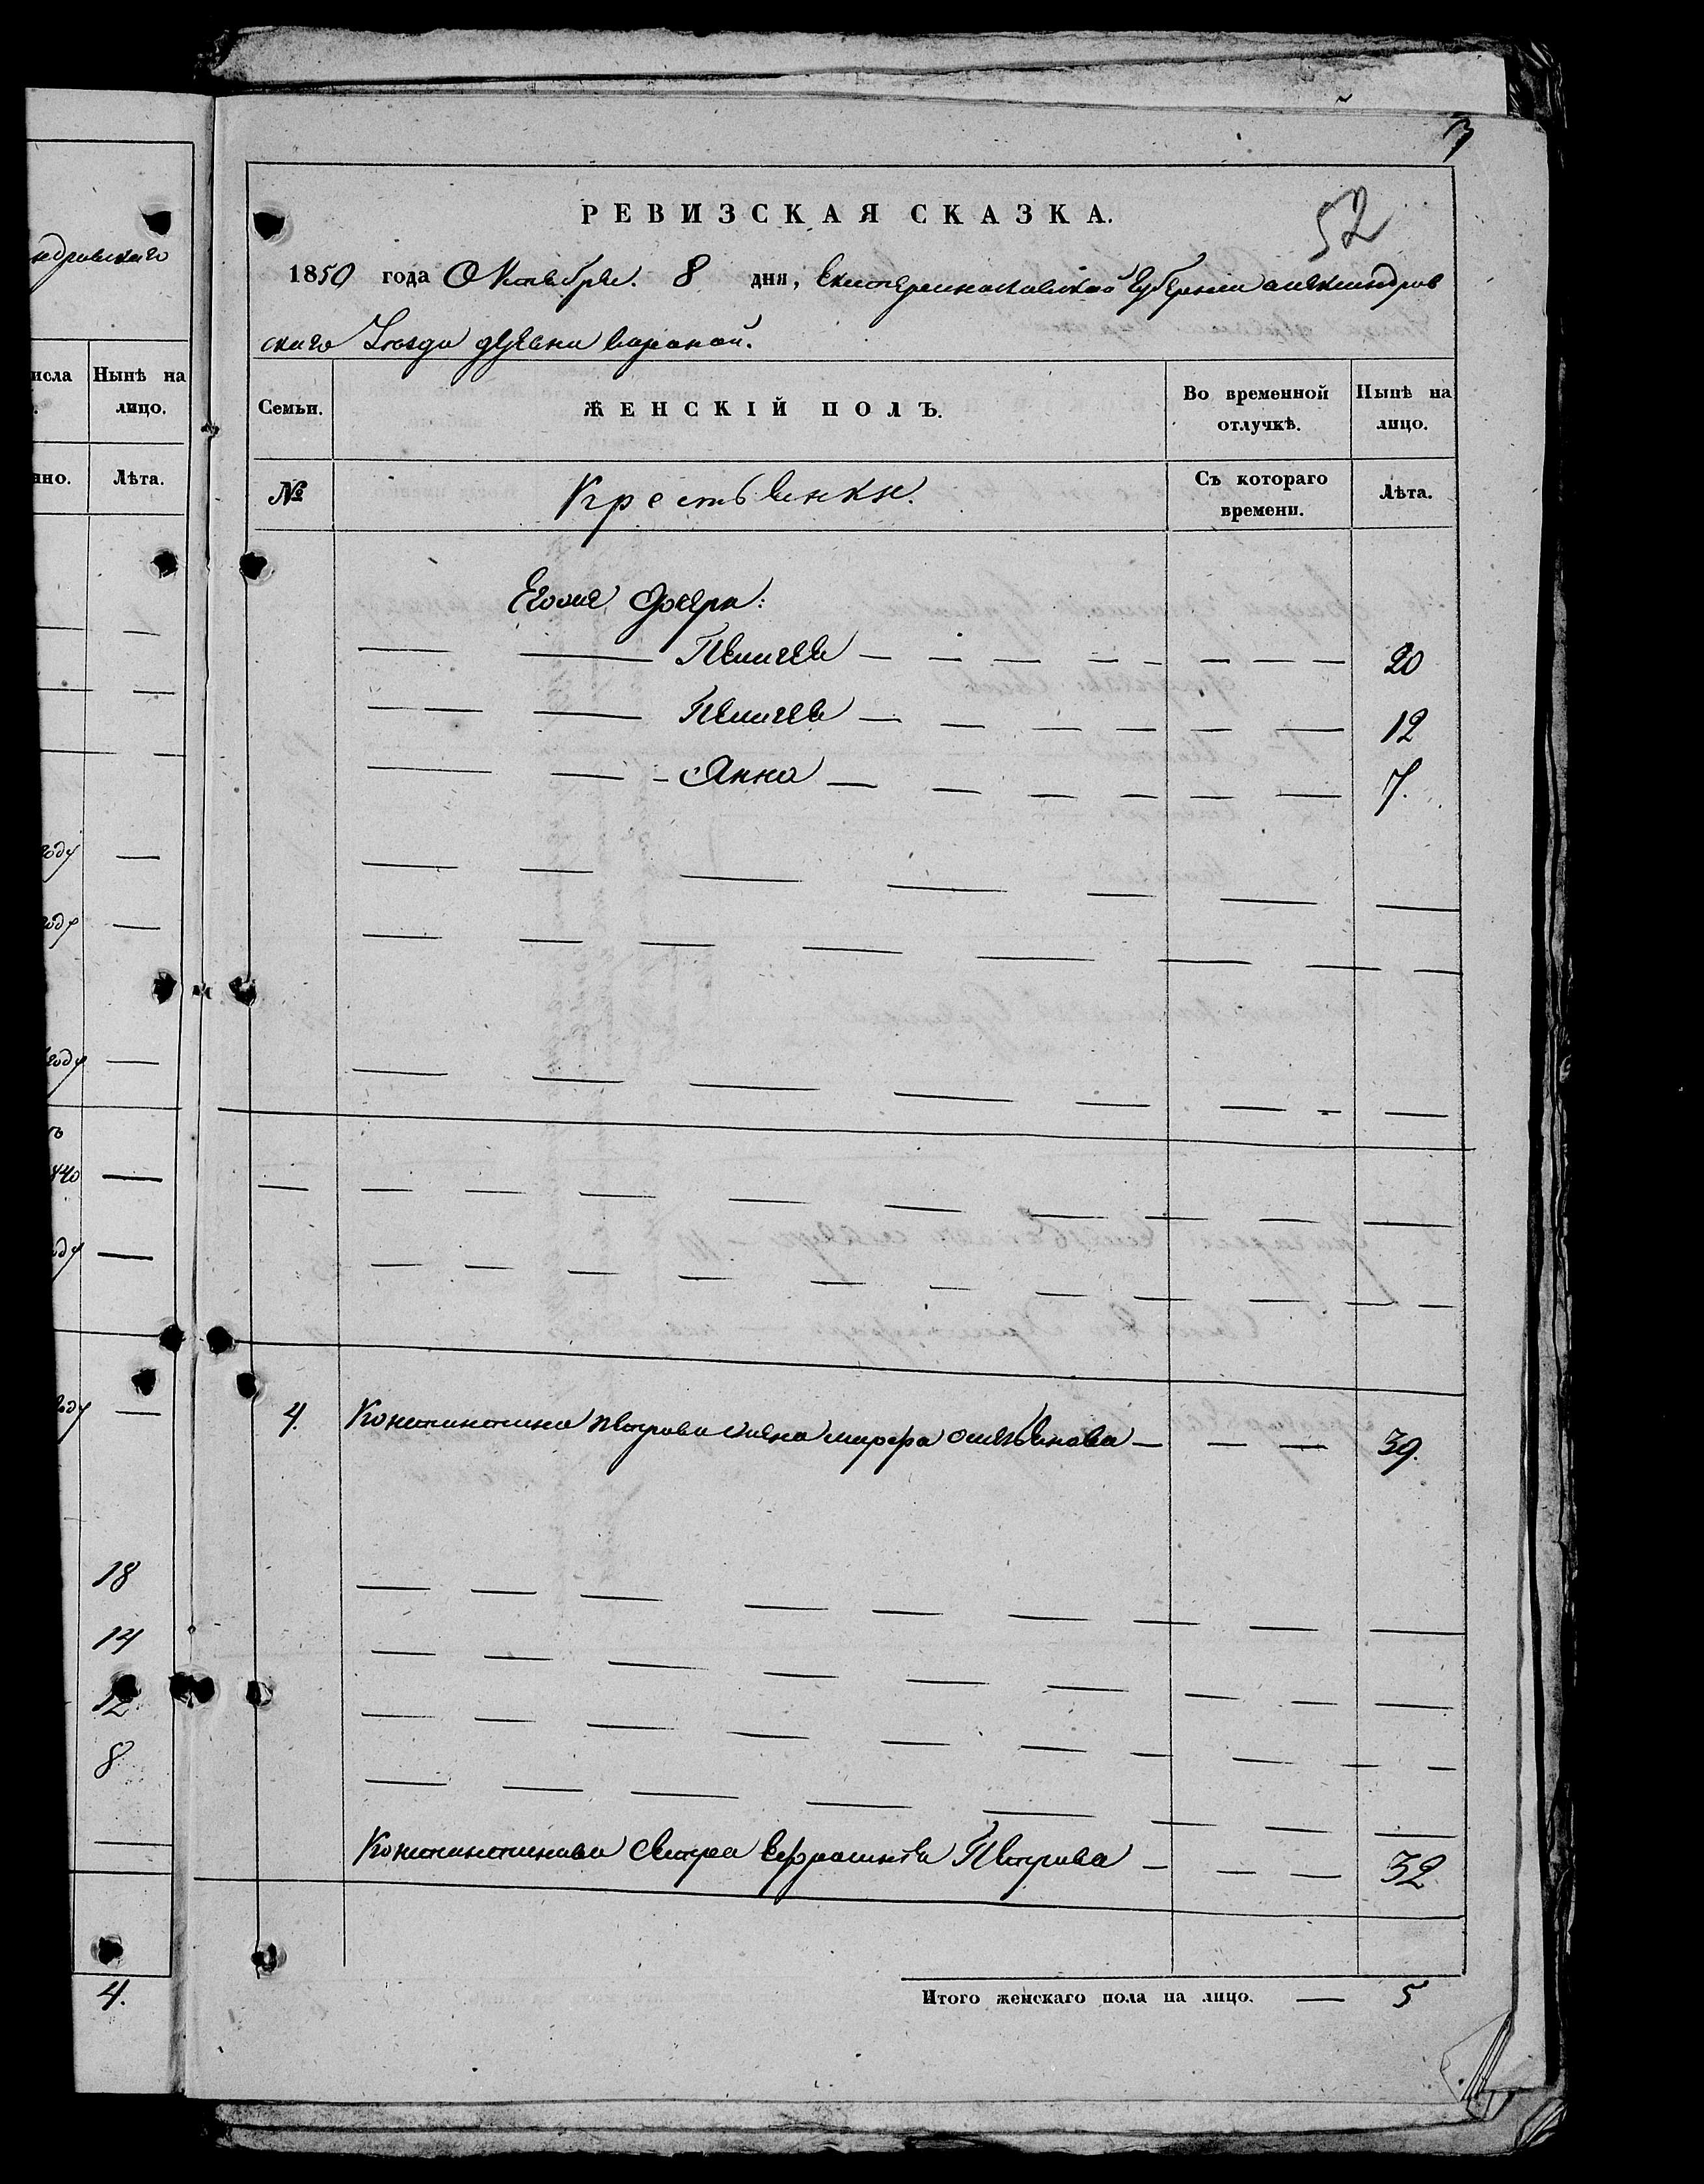 3
52
РЕВИЗСКАЯ СКАЗКА.
1850 года Октября. 8 дня, Екатеринославской Губернии александров
скаго Уезда деревни
Семьи.
ЖЕНСКІЙ ПОЛЪ.
Во временной отлучкѣ.
Нынѣ на лицо.
№
Крестьянки.
Съ котораго времени.
Лѣта.
дочери:
Пелагея 20
Пелагея 12
Анна 7.
4. Константина петрова жена марфа 39.
Константинова Сестра Ефросинья Петрова 32
Итого женскаго пола на лицо. — 5
ндровскаго
исла
Нынѣ на лицо.
нно.
Лѣта.
году
году
году
840
оду
году
18
14
12
8
4.